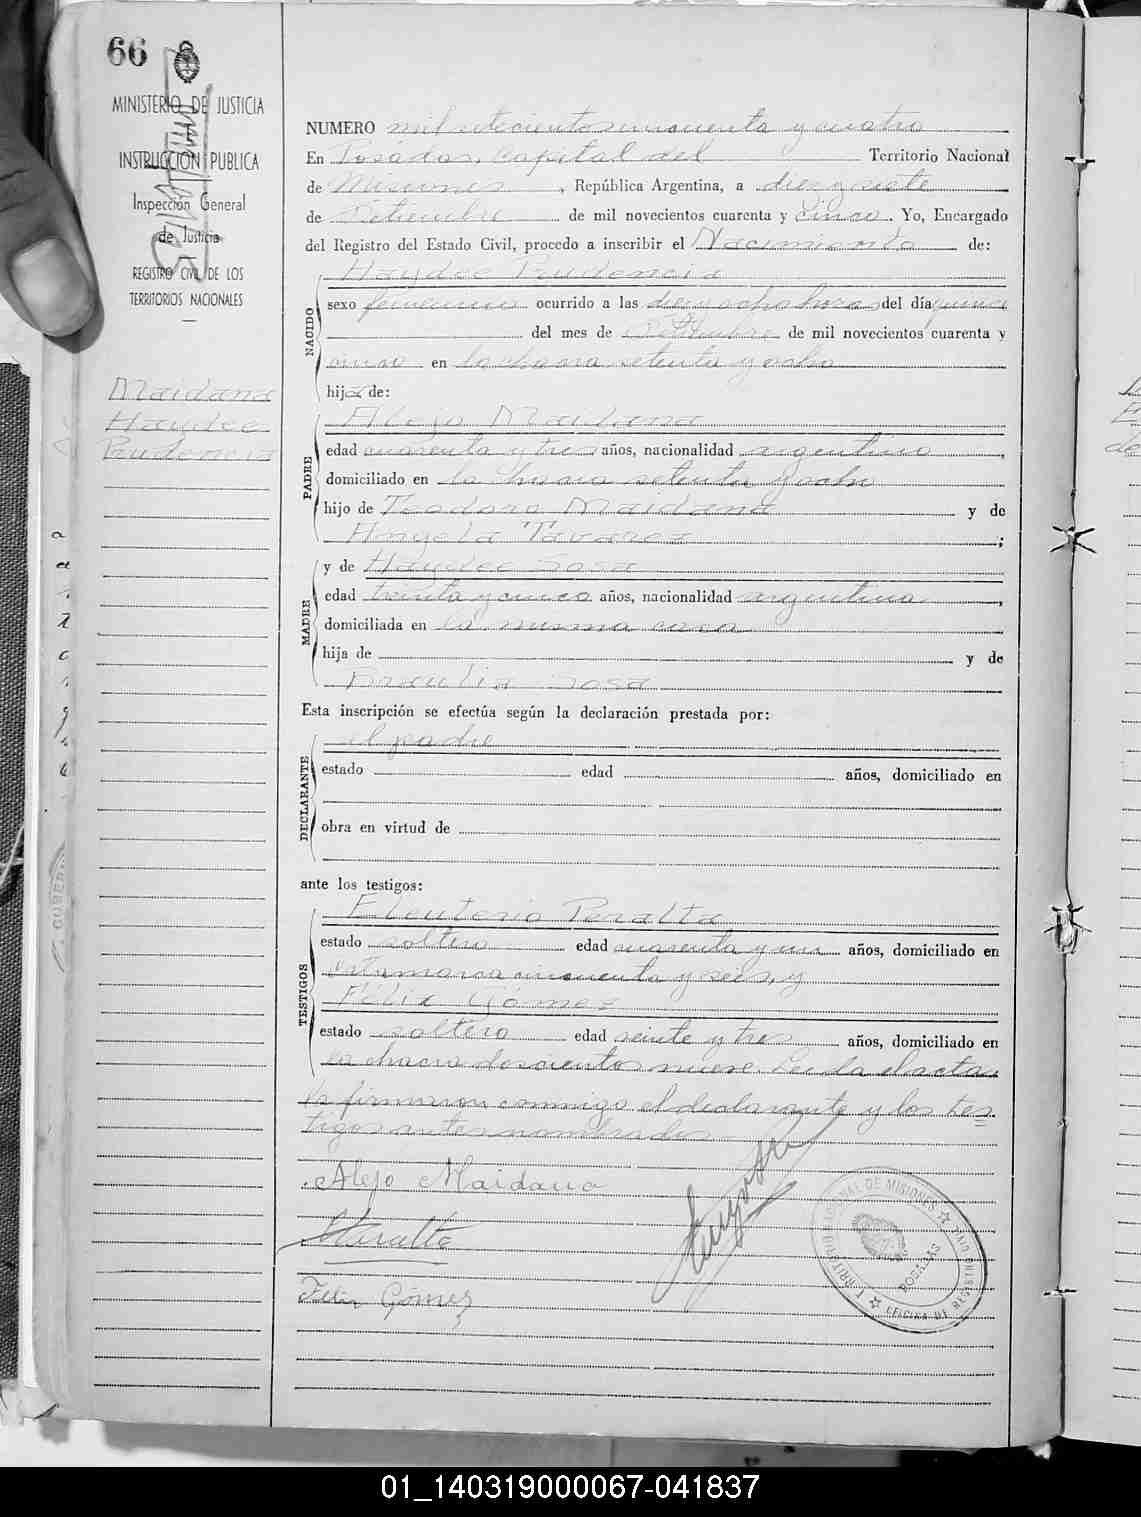 66
MINISTERIO DE JUSTICIA
INSTRUCCION PUBLICA
Inspección General
de Justicia
REGISTRO CIVIL DE LOS
TERRITORIOS NACIONALES
Maidana
Haydee
Prudencia
NUMERO mil setecientos cincuenta y cuatro
En Posadas, Capital del Territorio Nacional
de Misiones, República Argentina, a diez y siete
de Setiembre de mil novecientos cuarenta y cinco. Yo, Encargado
del Registro del Estado Civil, procedo a inscribir el Nacimiento de:
NACIDO
Haydee Prudencia
sexo femenino ocurrido a las diez y ocho horas del día quince
del mes de Setiembre de mil novecientos cuarenta y
cinco en la chacra setenta y ocho
hija de:
PADRE
Alejo Maidana
edad cuarenta y tres años, nacionalidad argentino,
domiciliado en la chacra setenta y ocho
hijo de Teodoro Maidana y de
Angela Tavarez;
MADRE
y de Haydee Sosa
edad treinta y cinco años, nacionalidad argentina,
domiciliada en la misma casa
hija de y de
Braulia Sosa
Esta inscripción se efectúa según la declaración prestada por:
DECLARANTE
el padre
estado edad años, domiciliado en
obra en virtud de
ante los testigos:
TESTIGOS
Eleuterio Peralta
estado soltero edad cuarenta y un años, domiciliado en
cincuenta y seis, y
Félix Gómez
estado soltero edad veinte y tres años, domiciliado en
la chacra doscientos nueve. Leida el acta
la firmaron conmigo el declarante y los tes=
tigos antes nombrados.
Alejo Maidana
Peralta
Felix Gómez
TERRITORIO NACIONAL DE MISIONES
POSADAS
OFICINA DE REGISTRO CIVIL
01_140319000067-041837